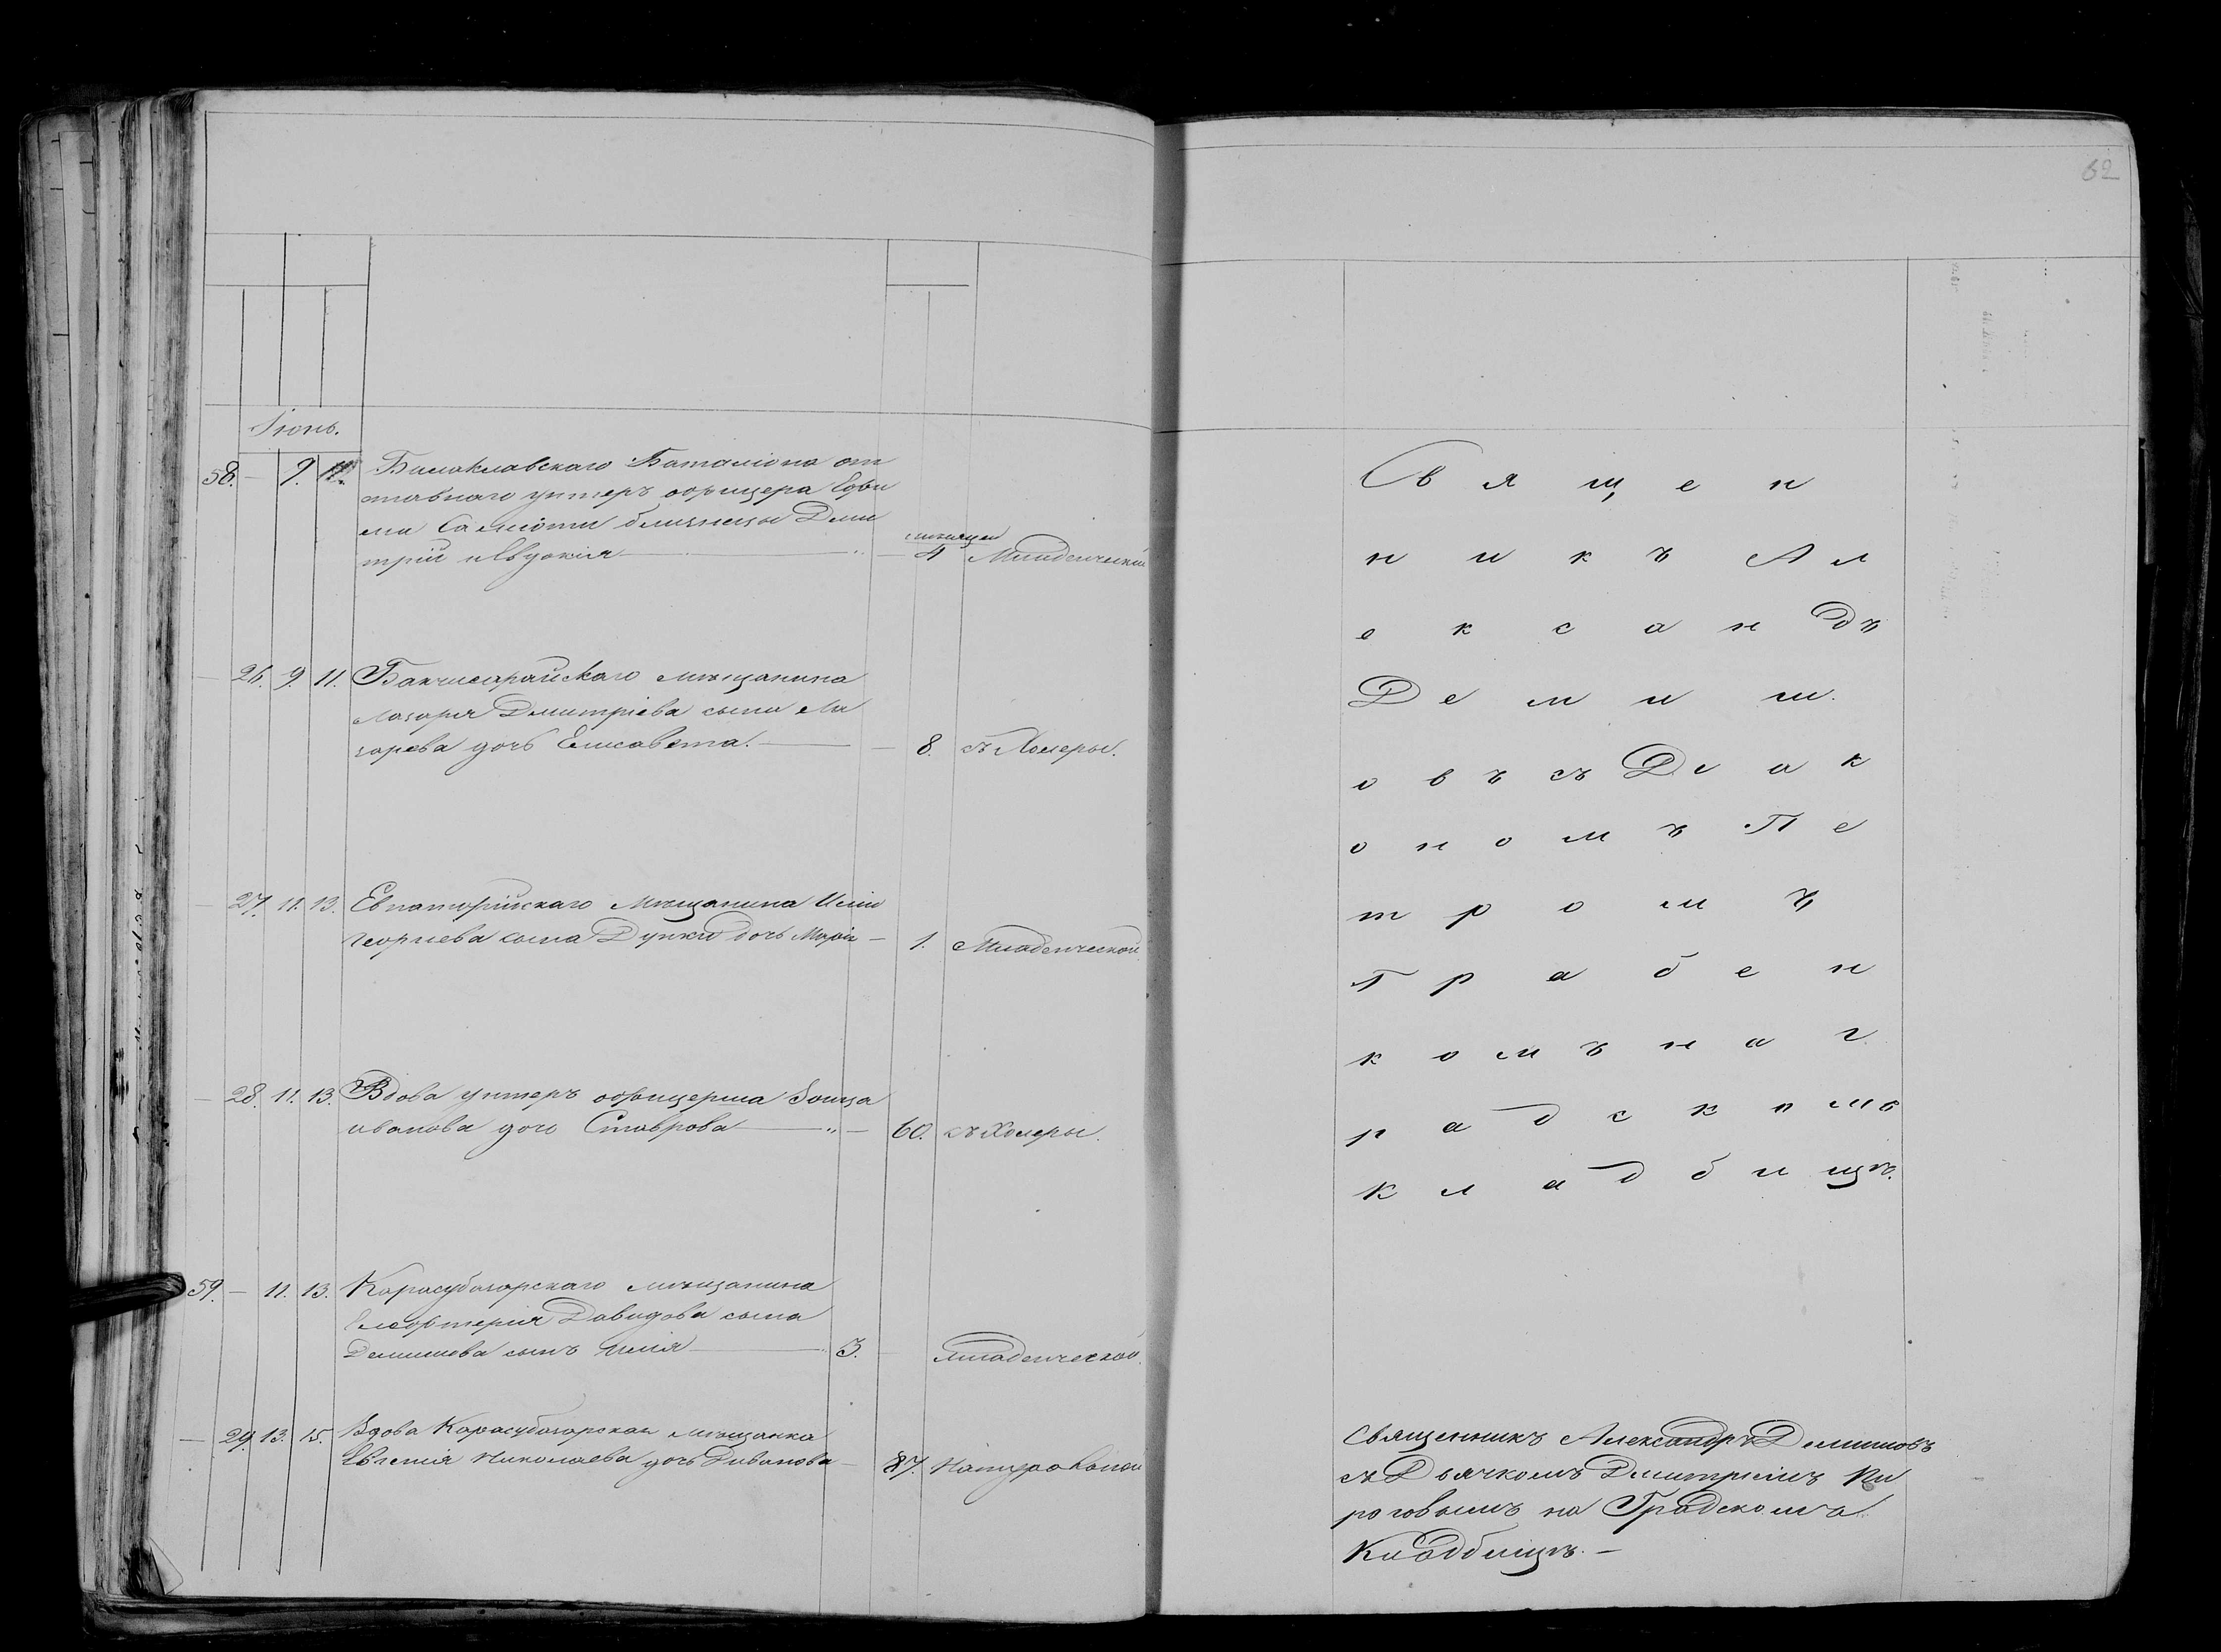 62
Іюнь.
58. — 9. 11. Балаклавскаго Баталіона от
ставнаго унтеръ офицера Ефи
ма близнецы Дми
трій и Евдокія — 4 Младенческой
мѣсяцев
— 26. 9. 11. Бахчисарайскаго мѣщанина
Лазаря Дмитріева сына Ла
зарева дочь Елисавета. — 8. съ Холеры.
— 27. 11. 13. Евпаторійскаго мѣщанина Иліи
Георгіева сына дочь Марія — 1. Младенческой
— 28. 11. 13. Вдова унтеръ офицерша
иванова дочь Ставрова — 60. съ Холеры.
59. — 11. 13. Карасубазарскаго мѣщанина
Елефтерія Давидова сына
Демишева сынъ Илія — 3. Младенческой.
— 29. 13. 15. Вдова Карасубазарская мѣщанка
Евгенія Николаева дочь Диванова — 87. Натуральной
Священ
никъ Ал
ександъ
Демиш
овъ съ Диак
ономъ Пе
тромъ
Грабен
комъ на г
радскомъ
кладбищѣ.
Священникъ Александръ Демишовъ
съ Дьячкомъ Дмитріемъ Пи
роговымъ на Градскомъ
Кладбищѣ. —